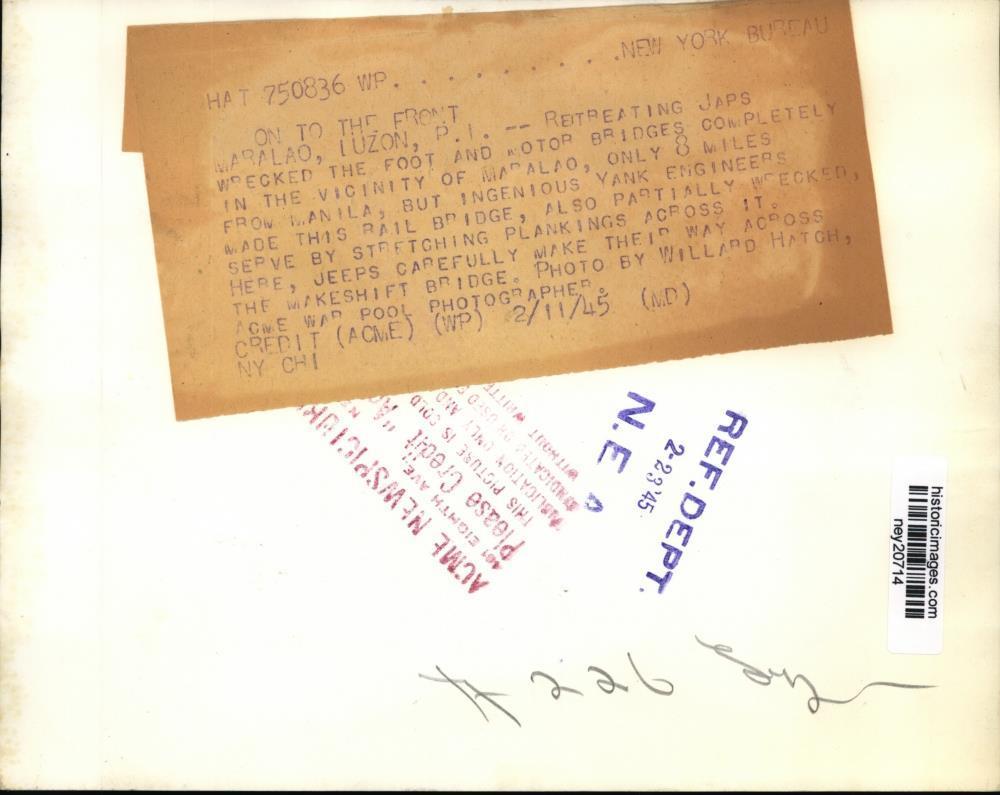 HAT 750836 WP. . . . . . . . . . .NEW YORK BUREAU
ON TO THE FRONT
MARALAO, LUZON, P.I. -- RETREATING JAPS
WRECKED THE FOOT AND MOTOR BRIDGES COMPLETELY
IN THE VICINITY OF MARALAO, ONLY 8 MILES
FROM MANILA, BUT INGENIOUS YANK ENGINEERS
MADE THIS RAIL BRIDGE, ALSO PARTIALLY WRECKED,
SERVE BY STRETCHING PLANKINGS ACROSS IT.
HERE, JEEPS CAREFULLY MAKE THEIR WAY ACROSS
THE MAKESHIFT BRIDGE. PHOTO BY WILLARD HATCH,
ACME WAR POOL PHOTOGRAPHER.
CREDIT (ACME) (WP) 2/11/45 (MD)
NY CHI
ACME NEWSPICTUR
461 EIGHTH AVE.
Please Credit "Ac
THIS PICTURE IS SOLD
PUBLICATION ONLY AND
SYNDICATED OR USED
WITHOUT WRITTE
N.E.A
2-23'45
REF.DEPT.
historicimages.com
ney20714
# 226